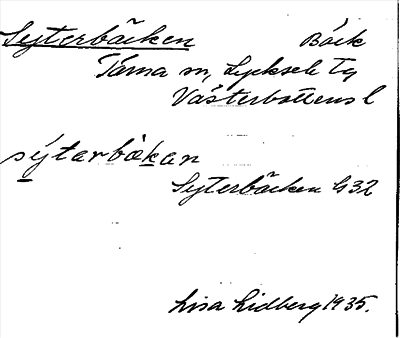 Syterbäcken Bäck
Tärna sn, Lycksele tg
Västerbottens l
sýtarbäkan
Syterbäcken G32
Lisa Lidberg 1935.